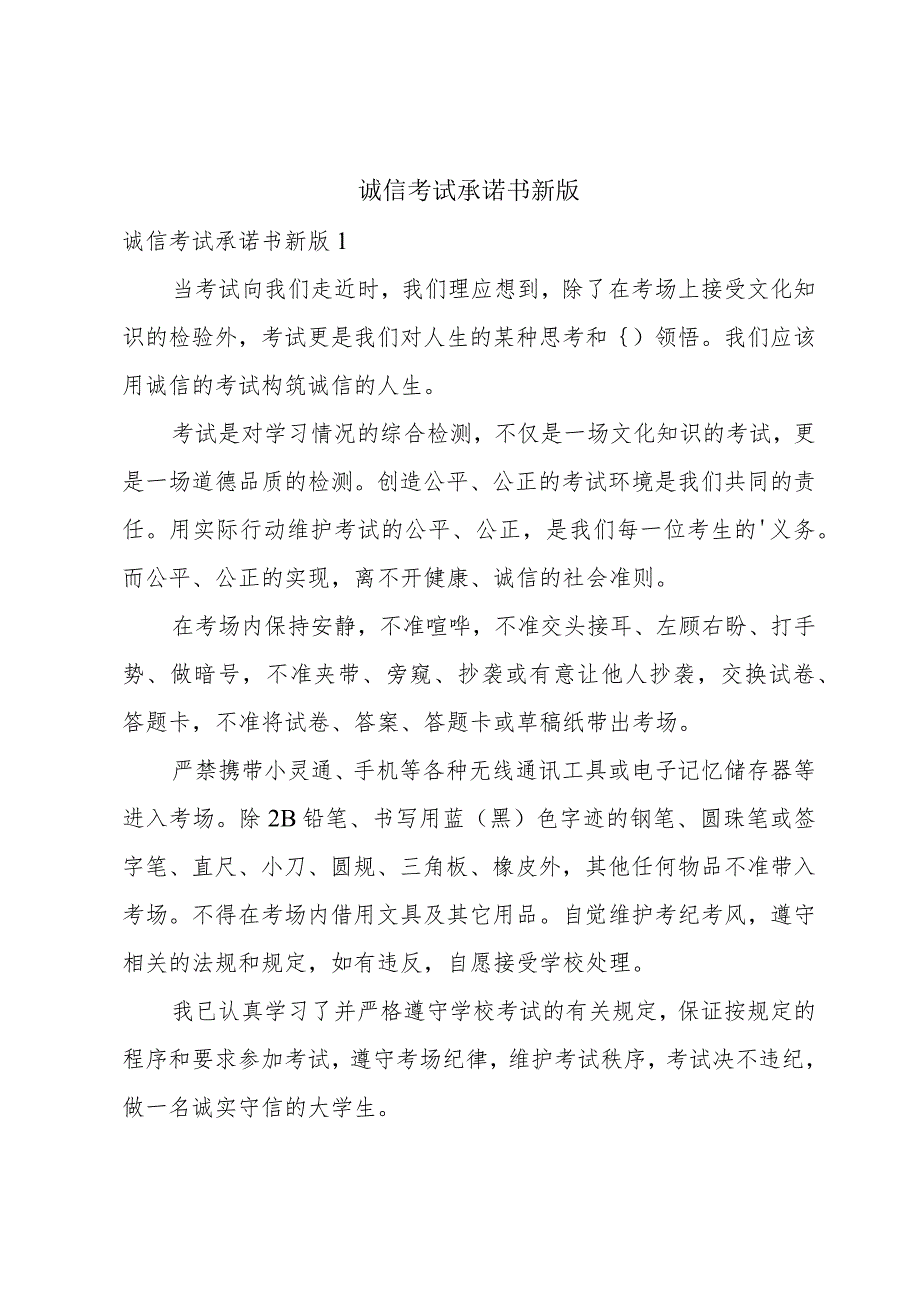 诚信考试承诺书新版
诚信考试承诺书新版1
当考试向我们走近时，我们理应想到，除了在考场上接受文化知
识的检验外，考试更是我们对人生的某种思考和｛）领悟。我们应该
用诚信的考试构筑诚信的人生。
考试是对学习情况的综合检测，不仅是一场文化知识的考试，更
是一场道德品质的检测。创造公平、公正的考试环境是我们共同的责
任。用实际行动维护考试的公平、公正，是我们每一位考生的'义务。
而公平、公正的实现，离不开健康、诚信的社会准则。
在考场内保持安静，不准喧哗，不准交头接耳、左顾右盼、打手
势、做暗号，不准夹带、旁窥、抄袭或有意让他人抄袭，交换试卷、
答题卡，不准将试卷、答案、答题卡或草稿纸带出考场。
严禁携带小灵通、手机等各种无线通讯工具或电子记忆储存器等
进入考场。除2B铅笔、书写用蓝（黑）色字迹的钢笔、圆珠笔或签
字笔、直尺、小刀、圆规、三角板、橡皮外，其他任何物品不准带入
考场。不得在考场内借用文具及其它用品。自觉维护考纪考风，遵守
相关的法规和规定，如有违反，自愿接受学校处理。
我已认真学习了并严格遵守学校考试的有关规定，保证按规定的
程序和要求参加考试，遵守考场纪律，维护考试秩序，考试决不违纪，
做一名诚实守信的大学生。